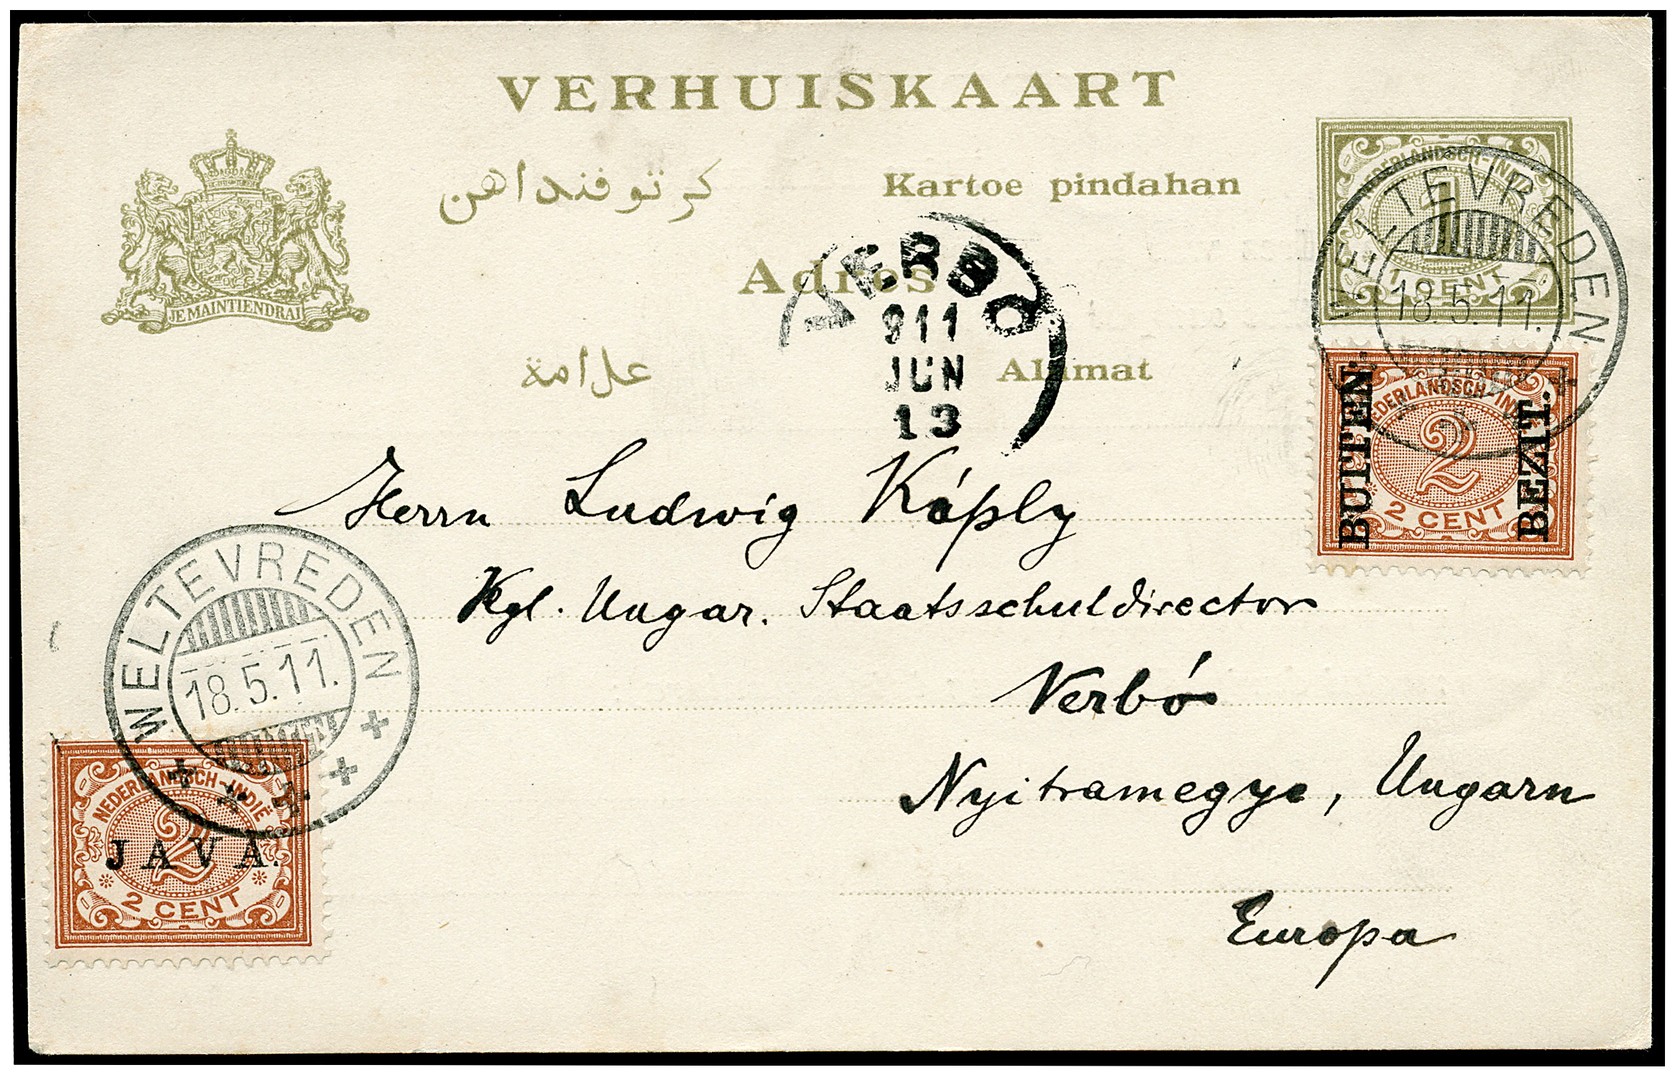 VERHUISKAART
كرتو فنداهن
Kartoe pindahan
JE MAINTIENDRAI
Adres
علامة
Alamat
NEDERLANDSCH-INDIË
1
1 CENT
WELTEVREDEN
18.5.11.
VERBÓ
911
JUN
13
BUITEN-
BEZIT.
NEDERLANDSCH-INDIË
2
2 CENT
Herrn Ludwig Káply
Kgl. Ungar. Staatsschuldirector
Verbó
Nyitramegye, Ungarn
Europa
WELTEVREDEN
18.5.11.
NEDERLANDSCH-INDIË
2
JAVA.
2 CENT